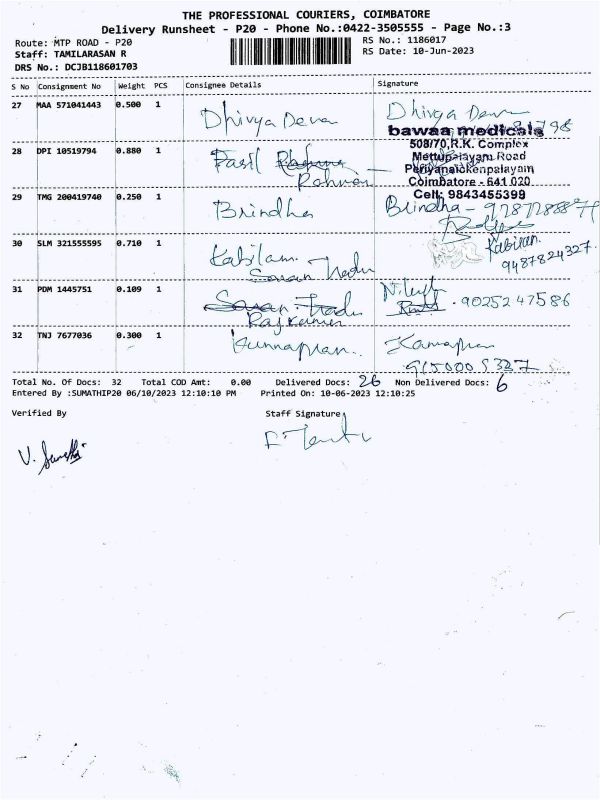 THE PROFESSIONAL COURIERS, COIMBATORE
Delivery Runsheet - P20 - Phone No.:0422-3505555 - Page No.:3
Route: MTP ROAD - P20
Staff: TAMILARASAN R
DRS No.: DCJB118601703
RS No.: 1186017
RS Date: 10-Jun-2023
S No Consignment No Weight PCS Consignee Details Signature
27 MAA 571041443 0.500 1 Dhivya Deva Dhivya Deva
bawaa medicals
508/70,R.K. Complex
Mettupalayam Road
Periyanaickenpalayam
Coimbatore - 641 020
Cell: 9843455399
28 DPI 10519794 0.880 1 Fasil Rahman
29 TMG 200419740 0.250 1 Brindha Brindha -
30 SLM 321555595 0.710 1 Kabilan Kabilan
9487824327.
31 PDM 1445751 0.109 1 Rajkumar 9025247586
32 TNJ 7677036 0.300 1
Total No. Of Docs: 32 Total COD Amt: 0.00 Delivered Docs: 26 Non Delivered Docs: 6
Entered By :SUMATHIP20 06/10/2023 12:10:10 PM Printed On: 10-06-2023 12:10:25
Verified By Staff Signature